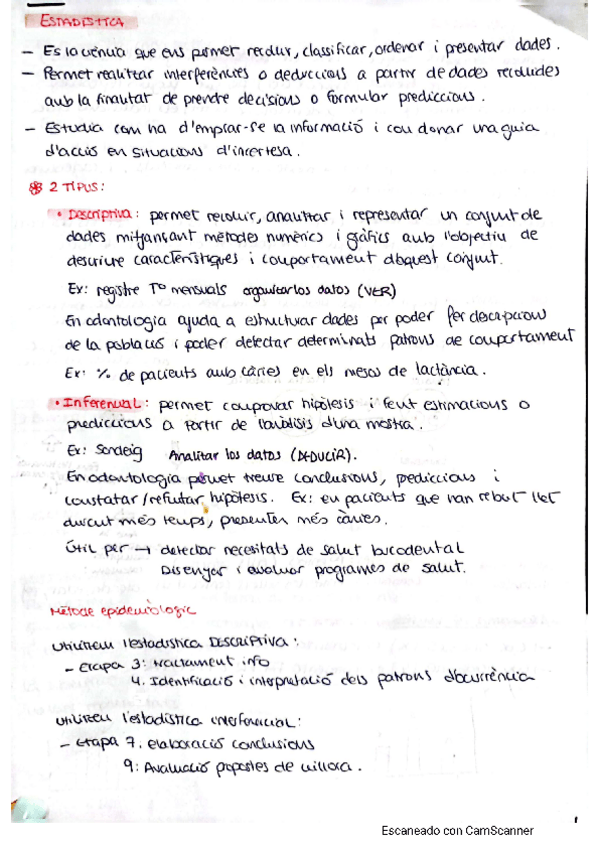 ESTADÍSTICA
- Es la ciència que ens permet recollir, classificar, ordenar i presentar dades.
- Permet realitzar interferències o deduccions a partir de dades recollides
amb la finalitat de prendre decisions o formular prediccions.
- Estudia com ha d'emprar-se la informació i com donar una guia
d'acció en situacions d'incertesa.
2 TIPUS:
• Descriptiva: permet recollir, analitzar i representar un conjunt de
dades mitjançant mètodes numèrics i gràfics amb l'objectiu de
descriure característiques i comportament d'aquest conjunt.
Ex: registre Tº mensuals organizar los datos (VER)
En odontologia ajuda a estructurar dades per poder fer descripcions
de la població i poder detectar determinats patrons de comportament
Ex: % de pacients amb càries en els mesos de lactància.
• Inferencial: permet comprovar hipòtesis i fent estimacions o
prediccions a partir de l'anàlisis d'una mostra.
Ex: Sondeig Analitzar los datos (DEDUCIR).
En odontologia permet treure conclusions, prediccions i
constatar/refutar hipòtesis. Ex: en pacients que han rebut llet
durant més temps, presenten més càries.
Útil per → detectar necesitats de salut bucodental
Disenyar i avaluar programes de salut.
Mètode epidemiològic
Utilitzem l'estadística DESCRIPTIVA:
- Etapa 3: tractament info
4. Identificació i interpretació dels patrons d'ocurrència
Utilitzem l'estadística inferencial:
- Etapa 7. elaboració conclusions
9: Avaluació propostes de millora.
1
Escaneado con CamScanner